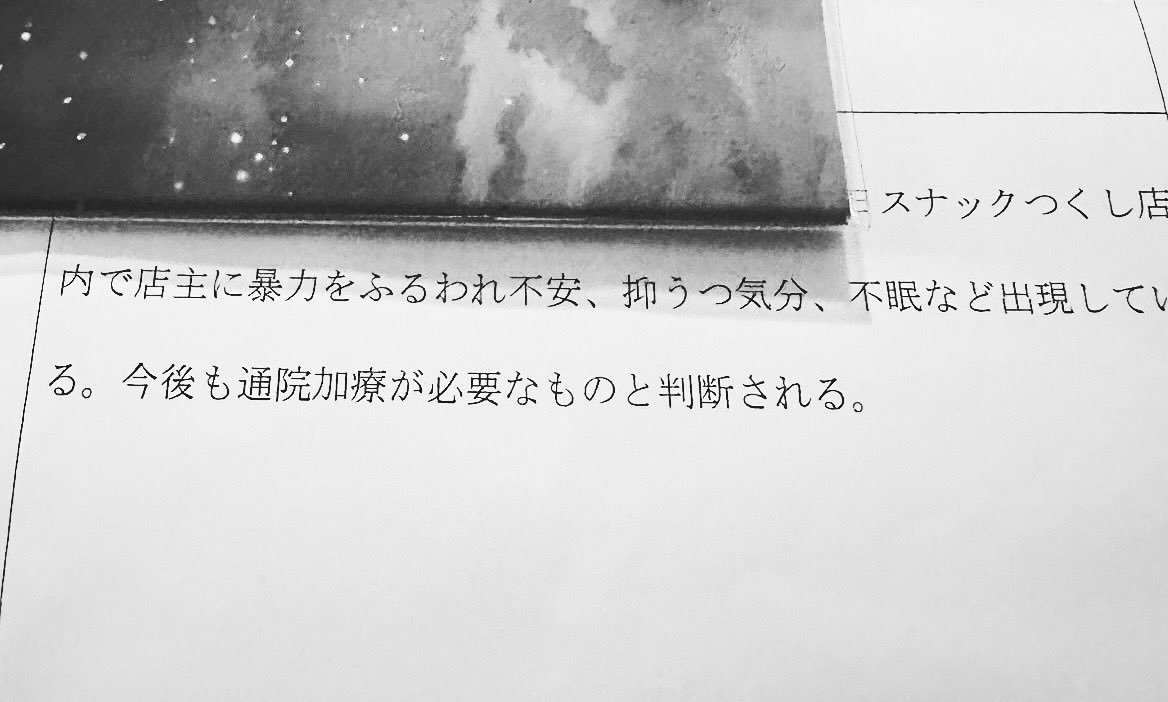 日 スナックつくし店
内で店主に暴力をふるわれ不安、抑うつ気分、不眠など出現してい
る。今後も通院加療が必要なものと判断される。